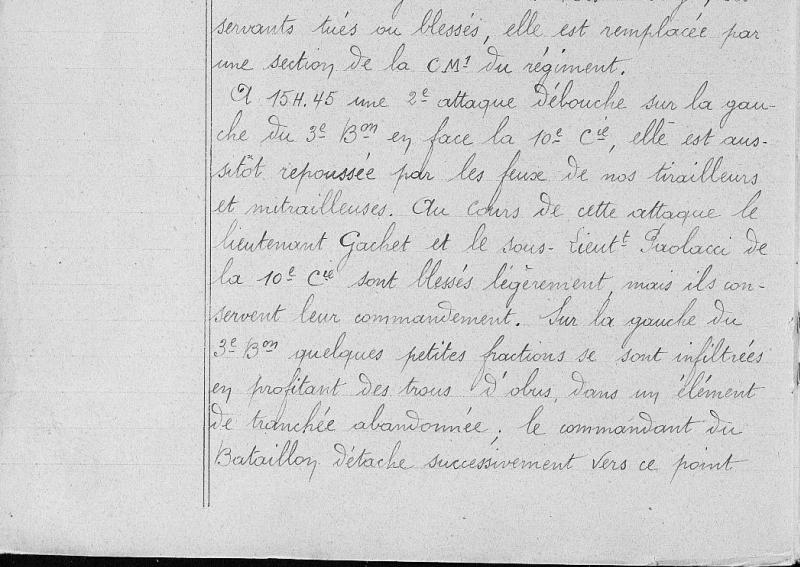 servants tués ou blessés, elle est remplacée par
une section de la CM1 du régiment.
A 15H.45 une 2e attaque débouche sur la gau-
che du 3e Bon en face la 10e Cie, elle est aus-
sitôt repoussée par les feux de nos tirailleurs
et mitrailleuses. Au cours de cette attaque le
lieutenant Gachet et le sous-Lieutt Paolacci de
la 10e Cie sont blessés légèrement, mais ils con-
servent leur commandement. Sur la gauche du
3e Bon quelques petites fractions se sont infiltrées
en profitant des trous d'obus, dans un élément
de tranchée abandonnée; le commandant du
Bataillon détache successivement vers ce point